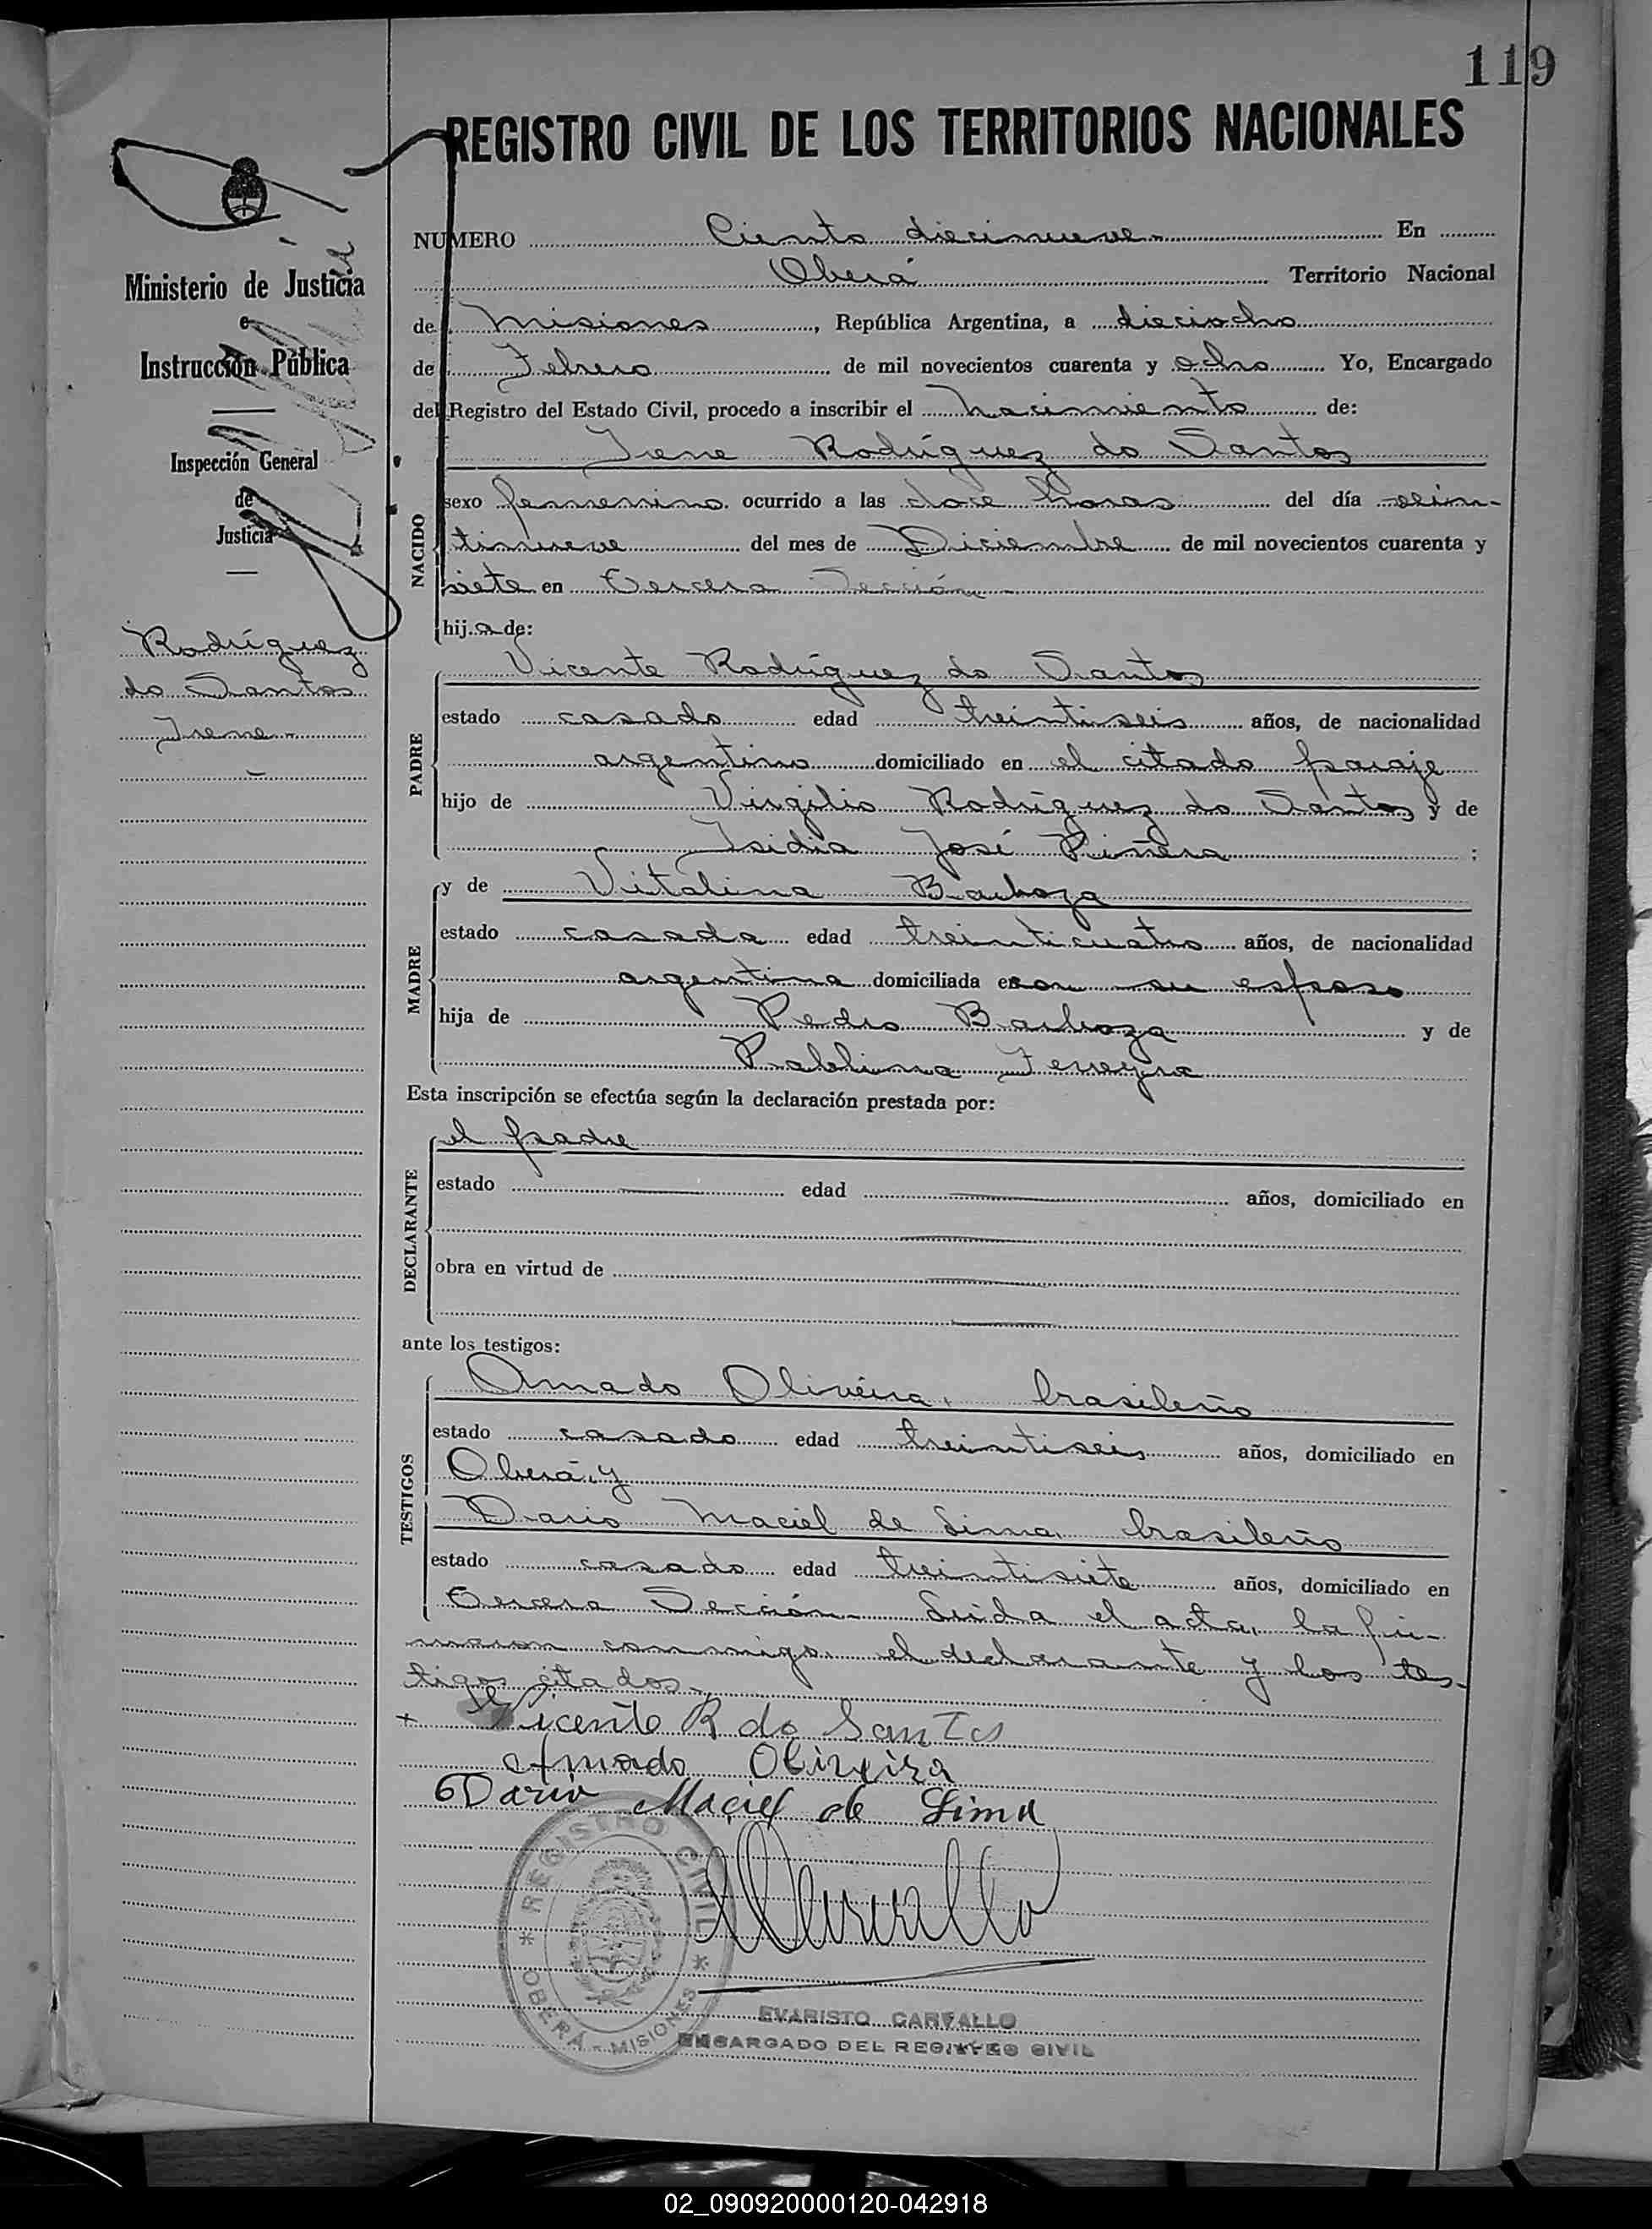 119
REGISTRO CIVIL DE LOS TERRITORIOS NACIONALES
Ministerio de Justicia
e
Instrucción Pública
Inspección General
de
Justicia
Rodríguez
do Santos
Irene
NUMERO Ciento diecinueve En
Oberá Territorio Nacional
de Misiones, República Argentina, a dieciocho
de Febrero de mil novecientos cuarenta y ocho Yo, Encargado
del Registro del Estado Civil, procedo a inscribir el nacimiento de:
Irene Rodríguez do Santos
NACIDO
sexo femenino ocurrido a las doce horas del día vein-
tinueve del mes de Diciembre de mil novecientos cuarenta y
siete en Tercera Sección
hija de:
PADRE
Vicente Rodríguez do Santos
estado casado edad treintiseis años, de nacionalidad
argentino domiciliado en el citado paraje
hijo de Virgilio Rodríguez do Santos y de
Isidia José Piñera ;
MADRE
y de Vitalina Barboza
estado casada edad treinticuatro años, de nacionalidad
argentina domiciliada con su esposo
hija de Pedro Barboza y de
Pablina Ferreyra
Esta inscripción se efectúa según la declaración prestada por:
DECLARANTE
el padre
estado edad años, domiciliado en
obra en virtud de
ante los testigos:
TESTIGOS
Amado Oliveira, brasileño
estado casado edad treintiseis años, domiciliado en
Oberá, y
Dario Maciel de Lima, brasileño
estado casado edad treintisiete años, domiciliado en
Tercera Sección - Leida el acta, la fir-
maron conmigo el declarante y los tes-
tigos citados.
+ Vicente R do Santos
Amado Oliveira
Dario Maciel de Lima
REGISTRO CIVIL
OBERÁ - MISIONES
EVARISTO CARVALLO
ENCARGADO DEL REGISTRO CIVIL
02_090920000120-042918